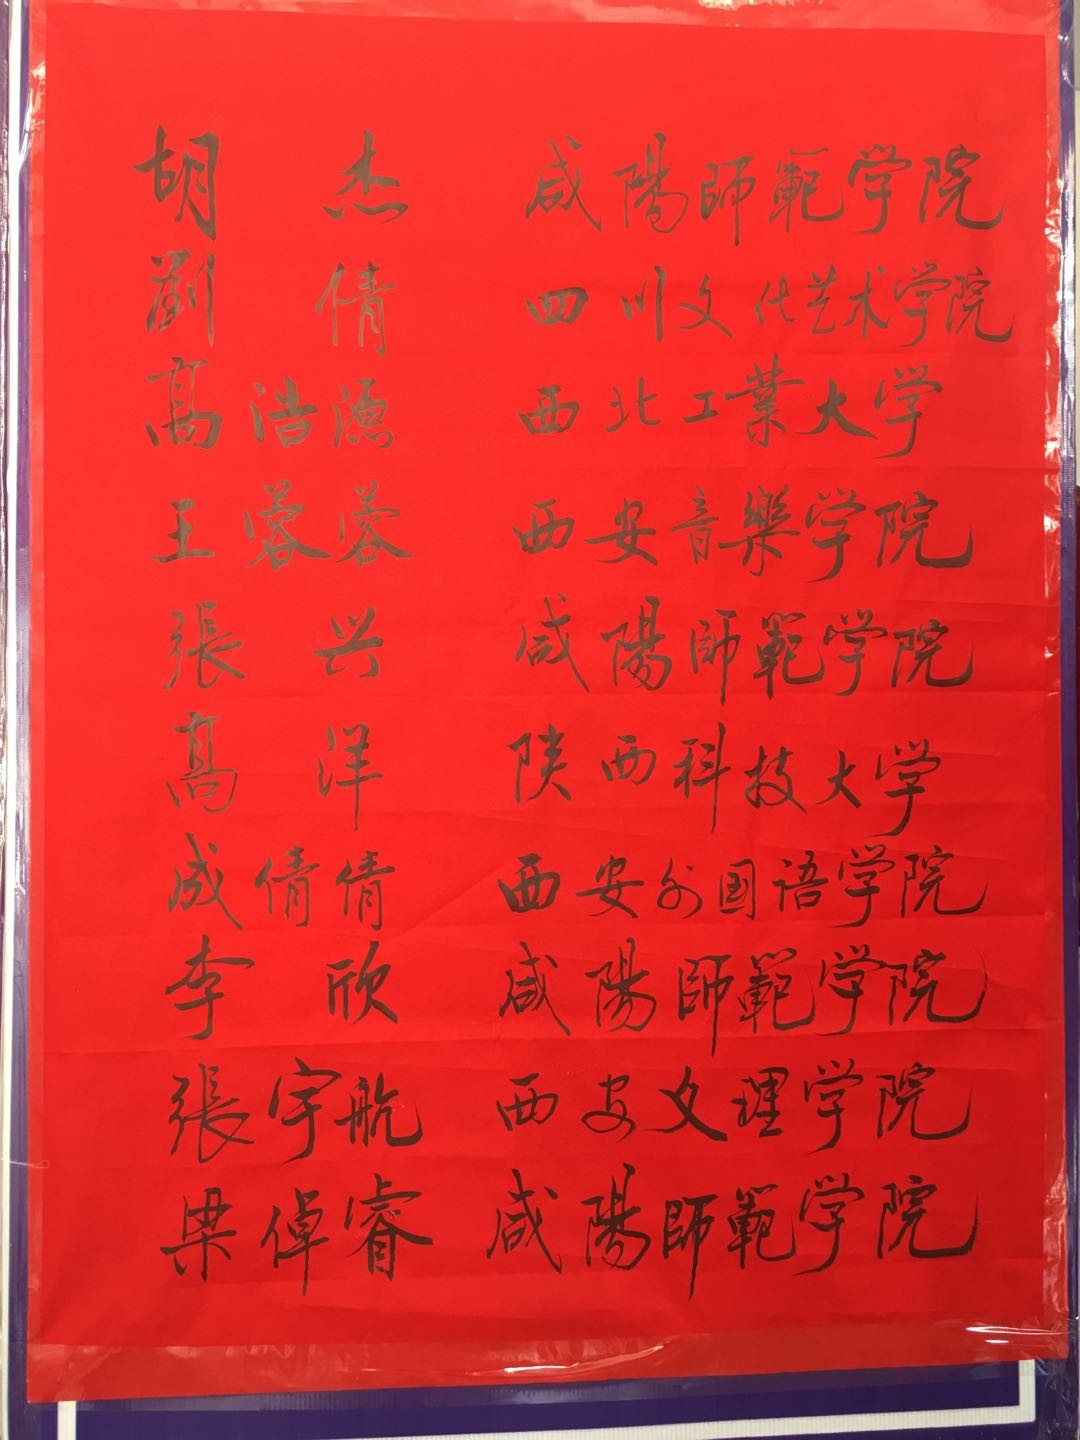 胡 杰 咸陽師範学院
劉 倩 四川文化艺术学院
髙浩源 西北工業大学
王蓉蓉 西安音樂学院
張 兴 咸陽師範学院
髙 洋 陕西科技大学
成倩倩 西安外国语学院
李 欣 咸陽師範学院
張宇航 西安文理学院
梁倬睿 咸陽師範学院